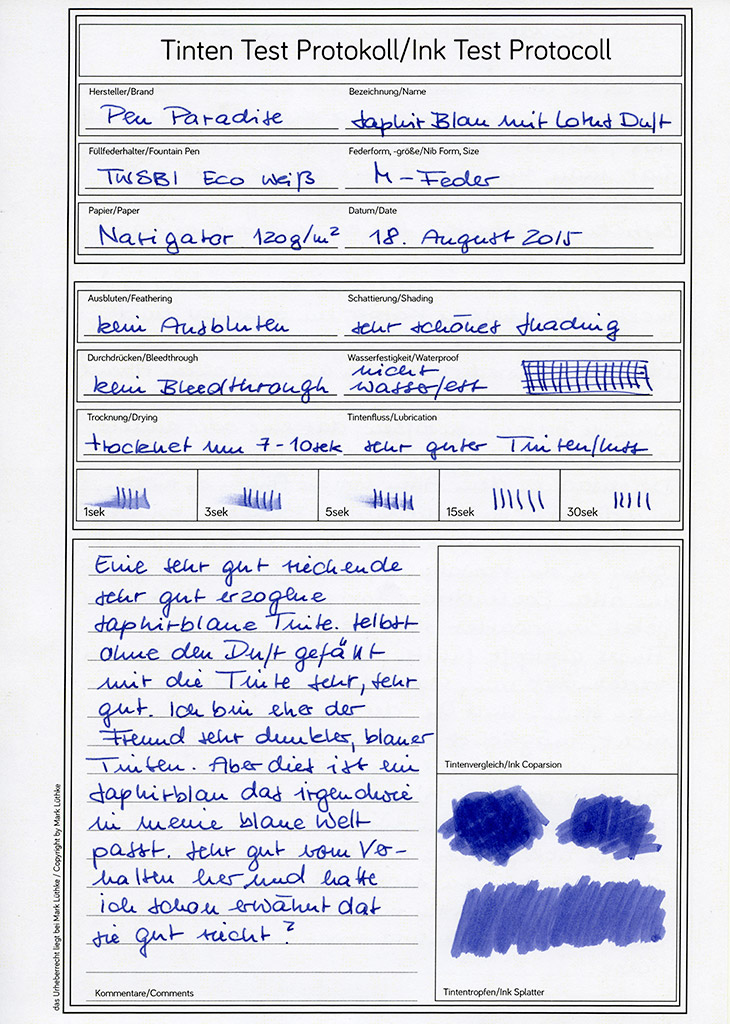 Tinten Test Protokoll/Ink Test Protocoll
Hersteller/Brand
Pen Paradise
Bezeichnung/Name
Saphir Blau mit Lotus Duft
Füllfederhalter/Fountain Pen
TWSBI Eco weiß
Federform, -größe/Nib Form, Size
M-Feder
Papier/Paper
Navigator 120g/m²
Datum/Date
18. August 2015
Ausbluten/Feathering
kein Ausbluten
Schattierung/Shading
sehr schönes Shading
Durchdrücken/Bleedthrough
kein Bleedthrough
Wasserfestigkeit/Waterproof
nicht
wasserfest
Trocknung/Drying
trocknet um 7-10sek
Tintenfluss/Lubrication
sehr guter Tintenfluss
1sek
3sek
5sek
15sek
30sek
Eine sehr gut riechende
sehr gut erzogene
saphirblaue Tinte. Selbst
ohne den Duft gefällt
mir die Tinte sehr, sehr
gut. Ich bin eher der
Freund sehr dunkler, blauer
Tinten. Aber dies ist ein
Saphirblau das irgendwie
in meine blaue Welt
passt. Sehr gut vom Ver-
halten her, und hatte
ich schon erwähnt das
sie gut riecht?
Kommentare/Comments
Tintenvergleich/Ink Coparsion
Tintentropfen/Ink Splatter
das Urheberrecht liegt bei Mark Lüthke / Copyright by Mark Lüthke